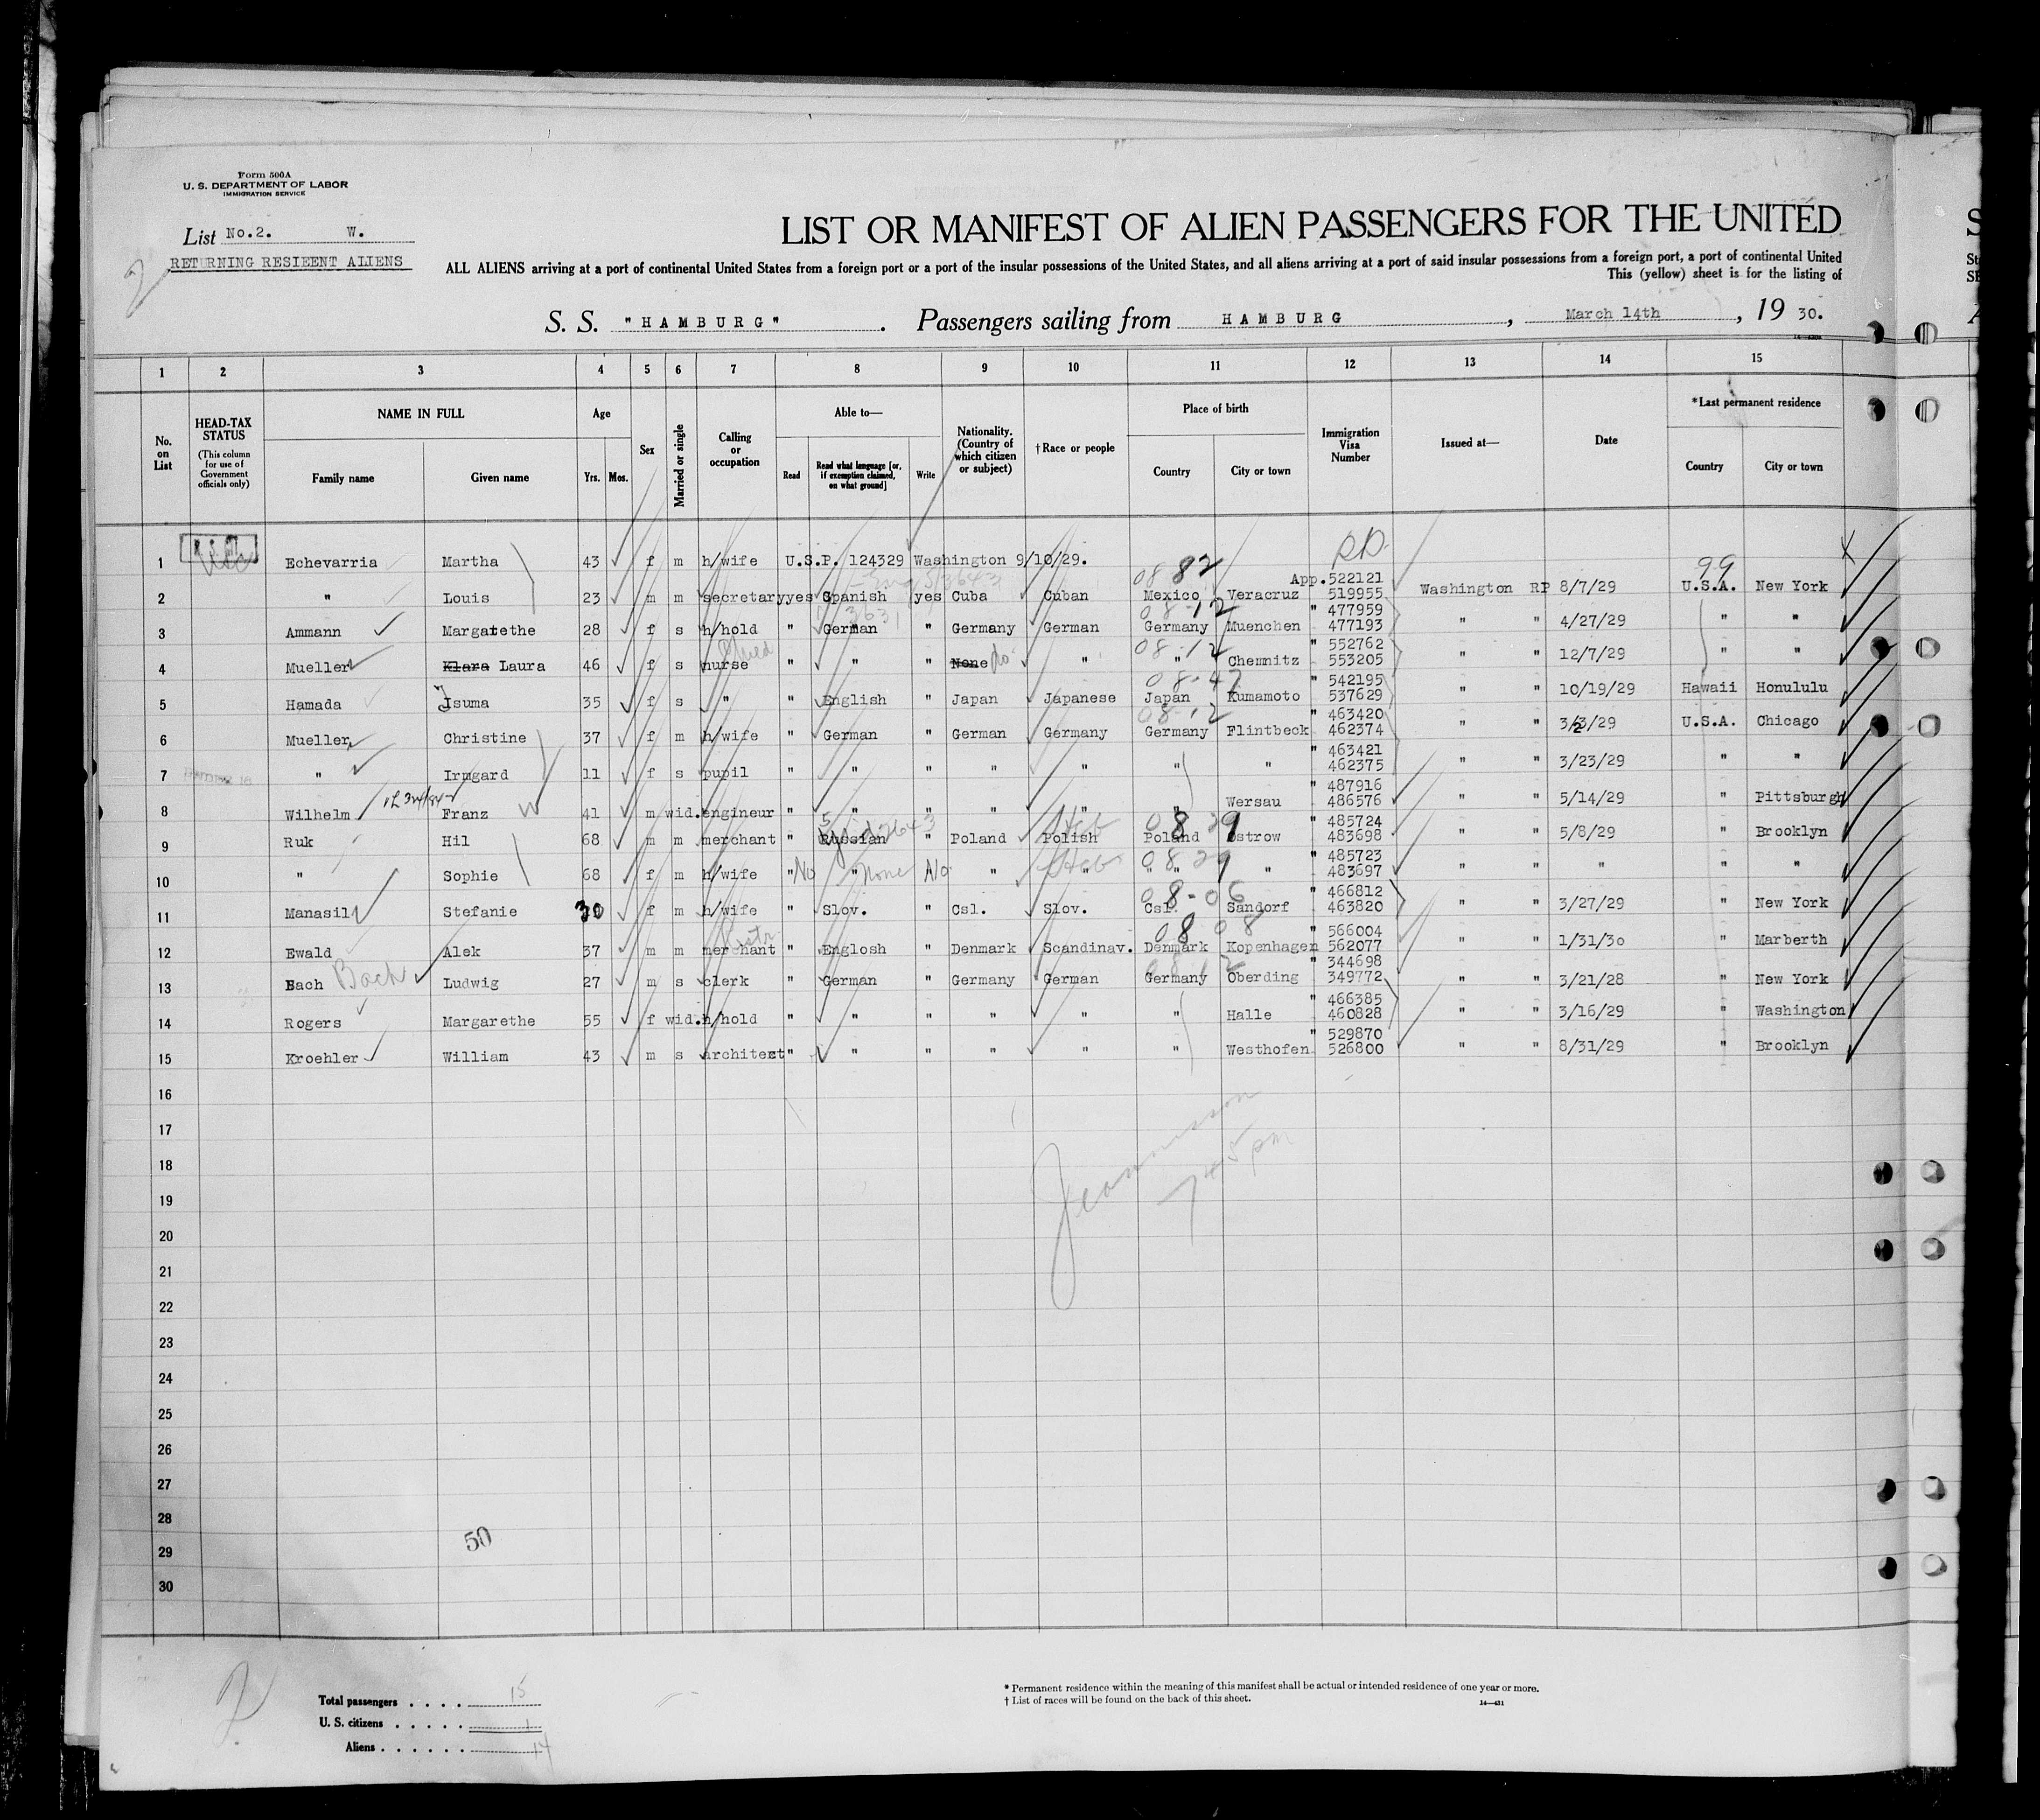 Form 500A
U. S. DEPARTMENT OF LABOR
IMMIGRATION SERVICE
List No.2. W.
RETURNING RESIEENT ALIENS
2
LIST OR MANIFEST OF ALIEN PASSENGERS FOR THE UNITED
ALL ALIENS arriving at a port of continental United States from a foreign port or a port of the insular possessions of the United States, and all aliens arriving at a port of said insular possessions from a foreign port, a port of continental United
This (yellow) sheet is for the listing of
S. S. "HAMBURG" . Passengers sailing from HAMBURG , March 14th , 19 30.
1 2 3 4 5 6 7 8 9 10 11 12 13 14 15
No. on List
HEAD-TAX STATUS (This column for use of Government officials only)
NAME IN FULL Family name Given name
Age Yrs. Mos.
Sex
Married or single
Calling or occupation
Able to— Read Read what language [or, if exemption claimed, on what ground] Write
Nationality. (Country of which citizen or subject)
†Race or people
Place of birth Country City or town
Immigration Visa Number
Issued at—
Date
*Last permanent residence Country City or town
1 Echevarria Martha 43 f m h/wife U.S.P. 124329 Washington 9/10/29.
08 82 99
2 " Louis 23 m m secretary yes Spanish yes Cuba Cuban Mexico Veracruz App.522121 519955 Washington RP 8/7/29 U.S.A. New York
08-12
3 Ammann Margatethe 28 f s h/hold " German " Germany German Germany Muenchen " 477959 477193 " " 4/27/29 " "
08-12
4 Mueller Klara Laura 46 f s nurse " " " None do " " Chemnitz " 552762 553205 " " 12/7/29 " "
08-47
5 Hamada Isuma 35 f s " " English " Japan Japanese Japan Kumamoto " 542195 537629 " " 10/19/29 Hawaii Honululu
08-12
6 Mueller Christine 37 f m h/wife " German " German Germany Germany Flintbeck " 463420 462374 " " 3/3/29 U.S.A. Chicago
7 " Irmgard 11 f s pupil " " " " " " " " 463421 462375 " " 3/23/29 " "
8 Wilhelm Franz 41 m wid. engineur " " " " " " Wersau " 487916 486576 " " 5/14/29 " Pittsburgh
08 29
9 Ruk Hil 68 m m merchant " Russian " Poland Polish Poland Ostrow " 485724 483698 " " 5/8/29 " Brooklyn
Heb 08 29
10 " Sophie 68 f m h/wife " No " None No " " " " " " 485723 483697 " " " " "
08-06
11 Manasil Stefanie 30 f m h/wife " Slov. " Csl. Slov. Csl. Sandorf " 466812 463820 " " 3/27/29 " New York
08 08
12 Ewald Alek 37 m m merchant " Englosh " Denmark Scandinav. Denmark Kopenhagen " 566004 562077 " " 1/31/30 " Marberth
13 Bach Bach Ludwig 27 m s clerk " German " Germany German Germany Oberding " 344698 349772 " " 3/21/28 " New York
14 Rogers Margarethe 55 f wid. h/hold " " " " " " Halle " 466385 460828 " " 3/16/29 " Washington
15 Kroehler William 43 m s architest " " " " " " Westhofen " 529870 526800 " " 8/31/29 " Brooklyn
16
17
18
19
20
21
22
23
24
25
26
27
28
29
30
50
2
Total passengers . . . . 15
U. S. citizens . . . . . 1
Aliens . . . . . . 14
* Permanent residence within the meaning of this manifest shall be actual or intended residence of one year or more.
† List of races will be found on the back of this sheet.